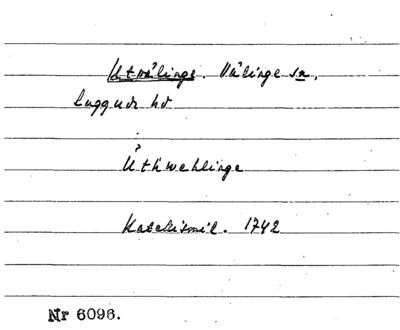 Utvälinge. Välinge sn,
Luggude hd
Uthwehlinge
Katekismil. 1742
Nr 6096.